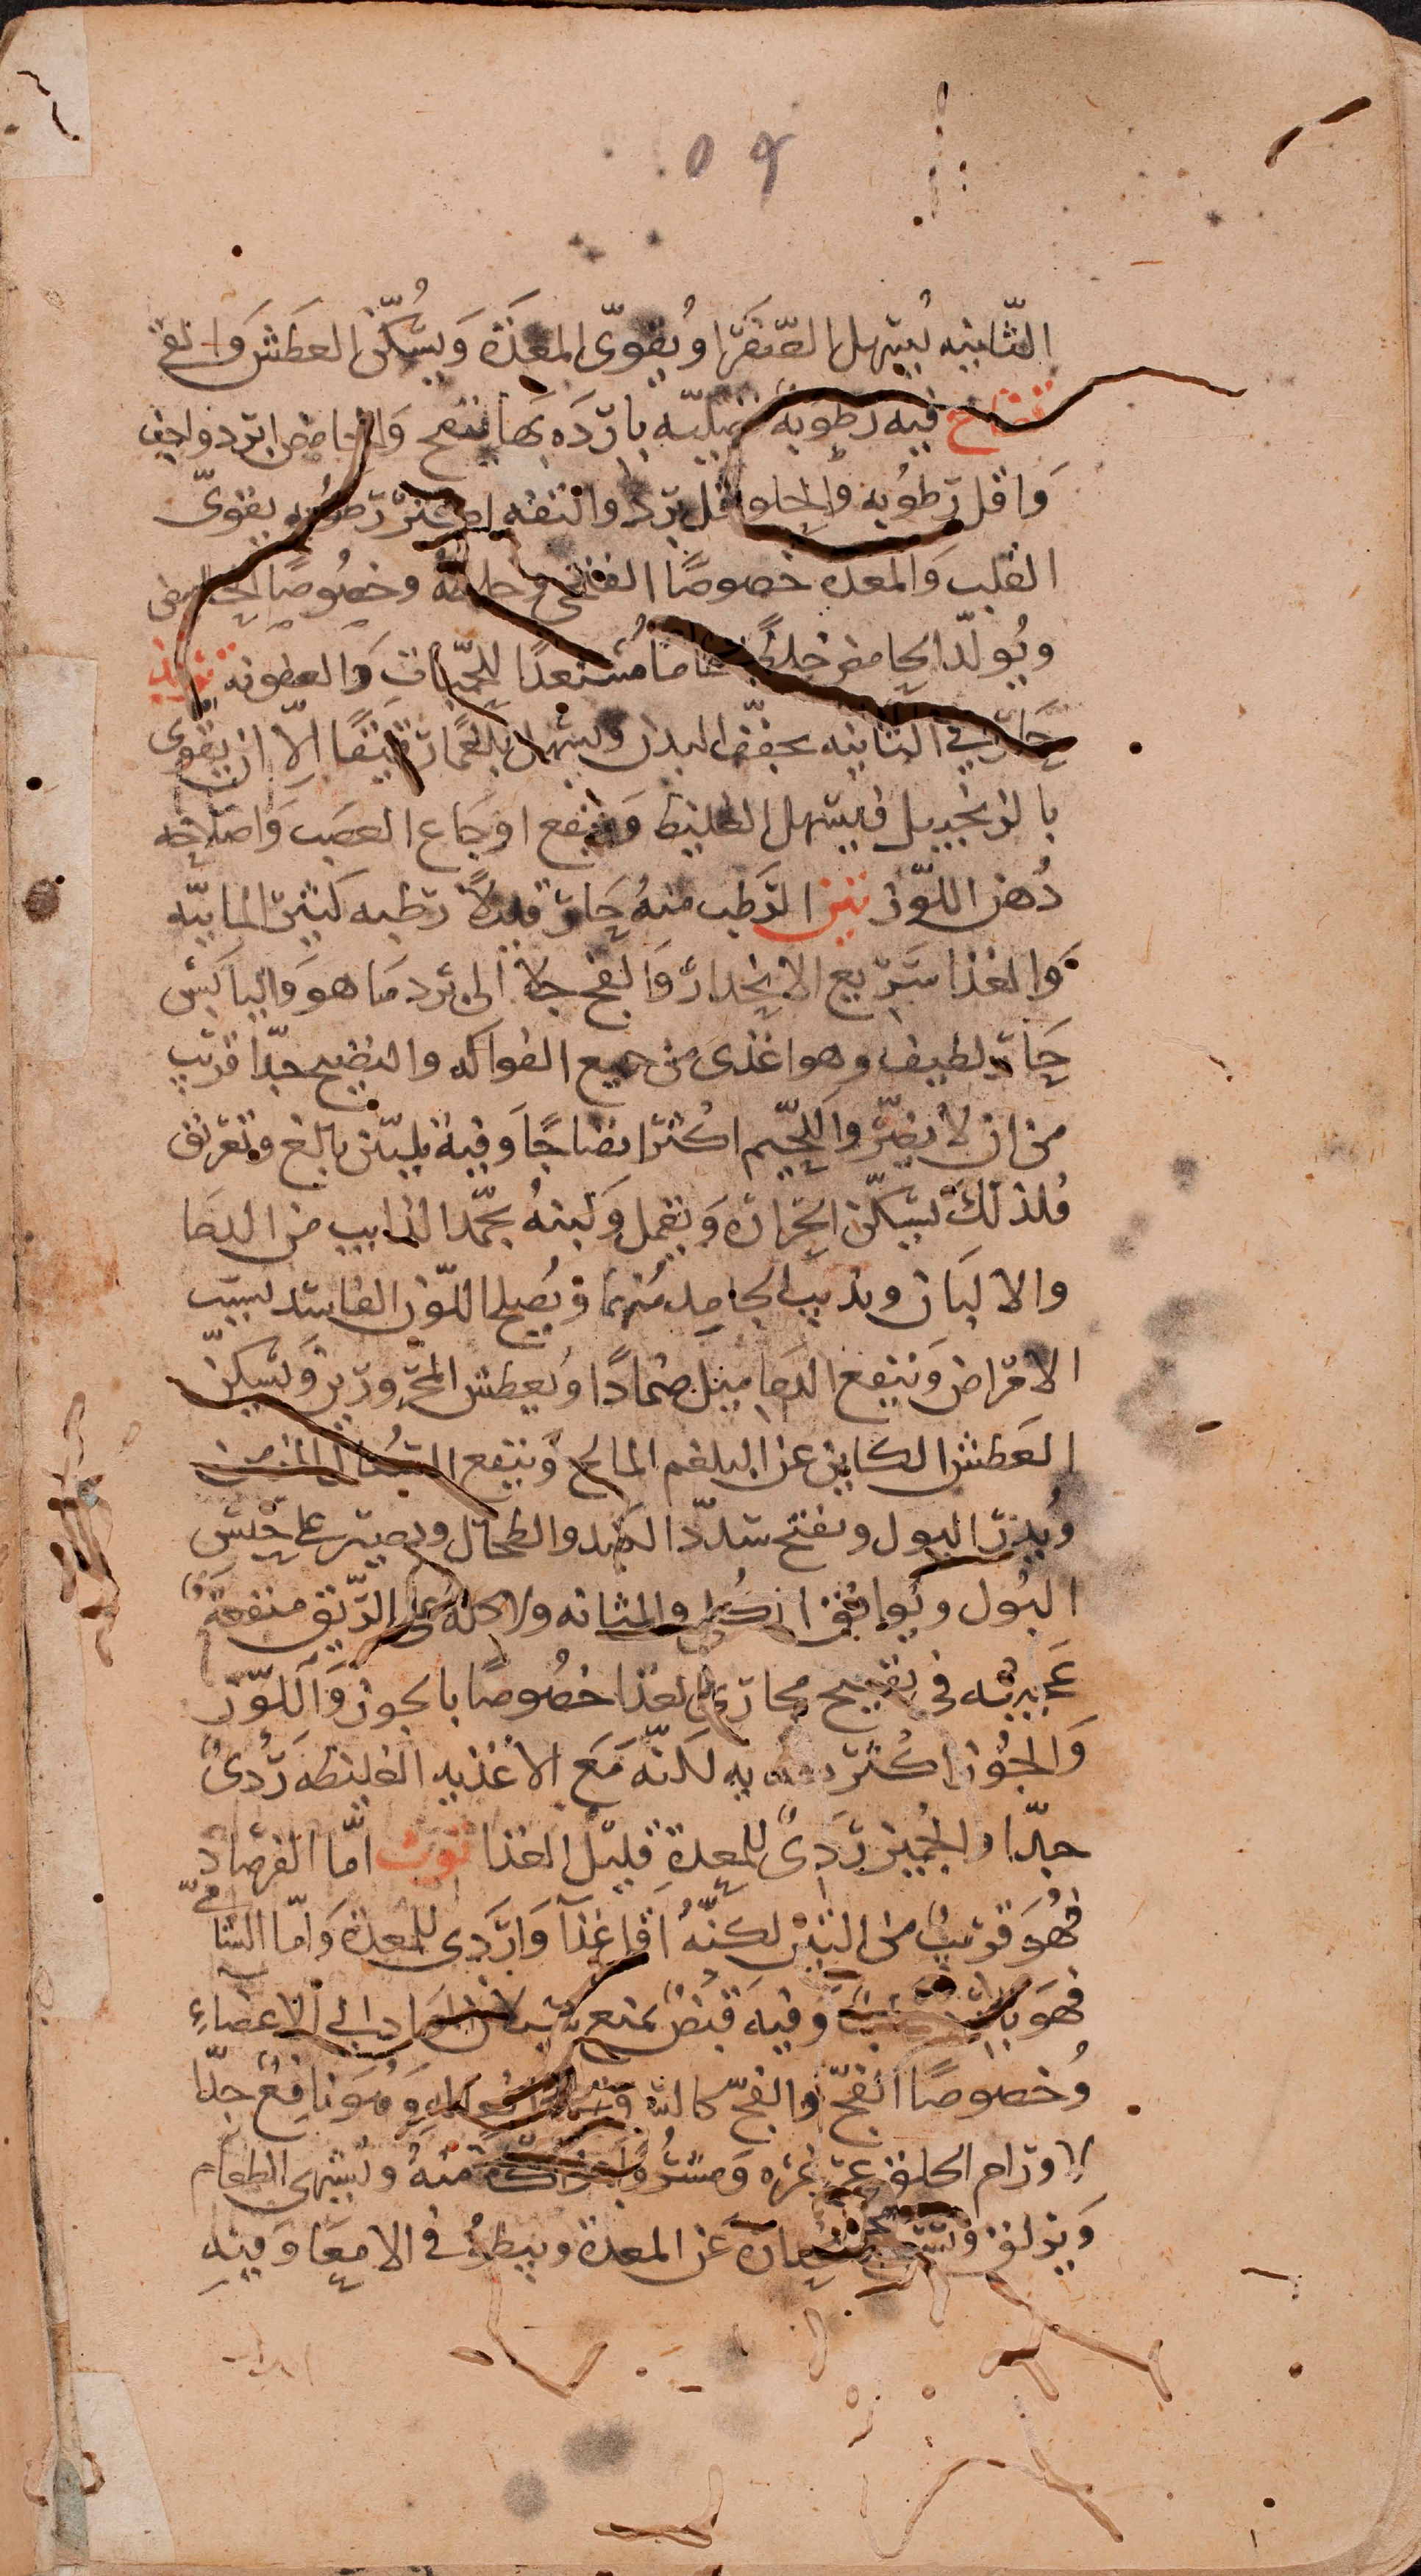 ٥٩
الثانيه يُسهل الصّفَرا ويُقوّى المعدَة وَيُسكّن العطش وَالغثى
تفاح فيه رطوبة فضليّه باردَه بها ينفخ وَالحامض ابرد واجف
وَاقل رطوُبه والحلو اقل بردا والتفه اكثر رطوبه يقوىّ
القلب وَالمعده خصوصًا الفتحى وحلوه وخصُوصًا
ويُولّد الحامض خلطًا خاما مُستعدًا للحمّيات وَالعفونه تربد
حَارّ فى الثانيه يجفف البدن ويسهل بلغمًا رقيقًا الّا ان يقوى
بالزنجبيل فيسهل الغليظ وَينفع اوجَاع العصَب وَاصلاحه
دُهن اللوّز تين الرّطب منهُ حَارّ قليلاً رطبه كثير المائيّه
وَالغذا سَريع الانحدار وَالفج جلا الى برد مَا هوَ وَاليابس
حَار لطيف وهو اغذى من جميع الفواكه والنضيج جدّا قريب
من ان لا يضرّ واللحيم اكثر انضاجًا وَفيه تليين بالغ وتعريق
فلذلك يسكّن الحرارة وَيقمل وَلبنهُ يجمّد الذايب من الدمَا
والالبَان ويذيب الجامد منهَا ويُصلح اللوّن الفاسد بسبب
الامراض وَينفع الدمَاميل ضمادًا ويُعطش المحرورين وَيسكن
العَطش الكاين عن البلغم المالح وَينفع السُعال المزمن
ويُدرّ البول ويفتح سدد الكبد والطحال ويصبر على حَبس
البُول ويُوافق الكُلى والمثانه ولاكله على الرّيق منفعة
عَجيبَه فى تفتيح مجارى الغذا خصُوصًا بالجوز وَاللوّز
وَالجوُز اكثر به لكنّه مَع الاغذيه الغليظه رَدُىٌ
جدّا والجُمّيز رَدىٌ للمعدة قليل الغذا توت امّا الفرصاد
فهُوَ قريبٌ من التين لكنّهُ اقل غذآ وَاردَى للمعدة وَامّا الشامىّ
فهوَ وَفيه قبضٌ يمنع سيلان الموَاد الى الاعضاءِ
وُخصوصًا الفجّ والفجّ كالسماق وَهُوَ نافعٌ جدّا
لاورام الحلق غرغره وَمشرُوبًا منهُ ويُشهى الطعام
وَيزلق انحداره عن المعدة ويبطؤ فى الامعَا وَفيه